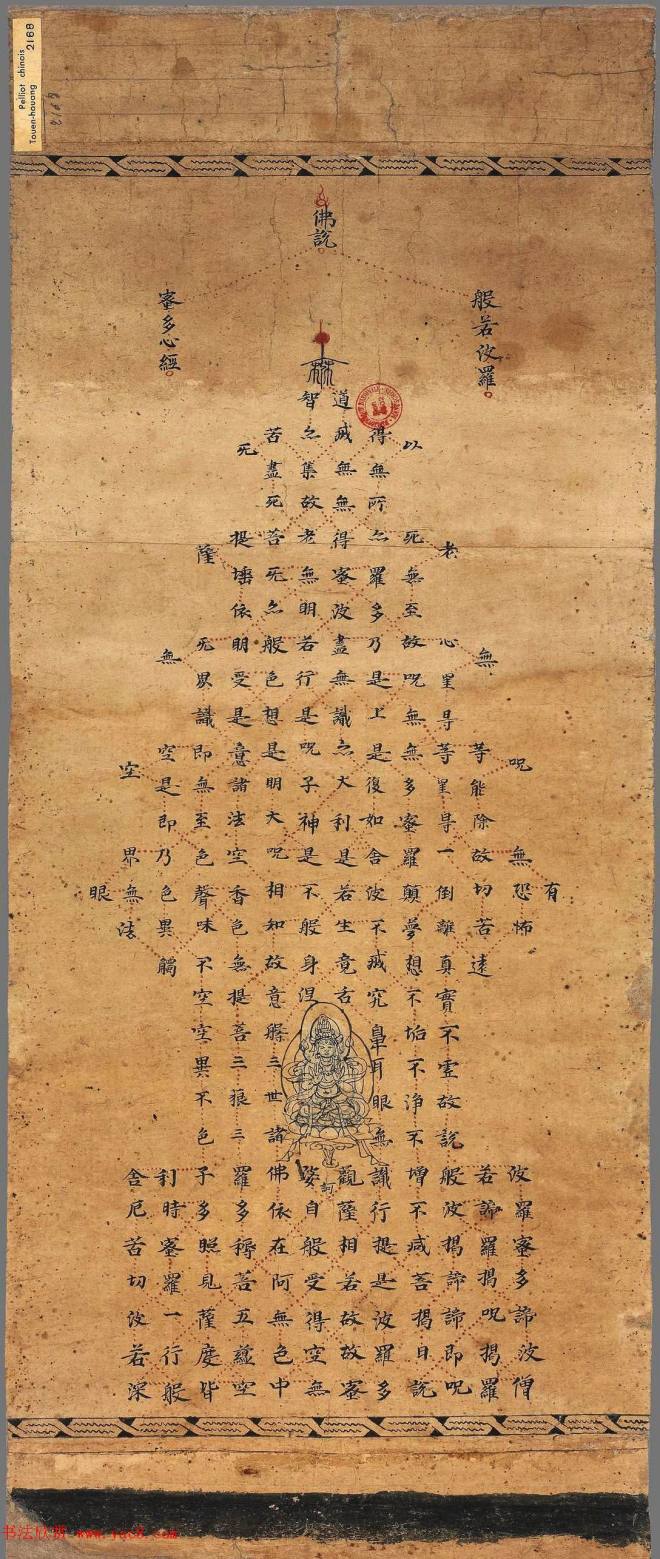 Pelliot chinois
Touen-houang 2168
佛說
般若波羅
蜜多心經
有
呪無恐怖
無等能除故切苦遠
老心罣㝵等罣㝵一倒離真實不虛故說
以死無至故呪無無多蜜羅顛夢想不垢不淨不
得無所亦羅多乃是上是復如舍波不滅究鼻耳眼無
道滅無無得蜜波盡無識亦大利是若生竟舌
智亦集故老無明若行是呪子神是不般身涅
苦盡死苦死亦般色想是明大呪相知故意槃三世諸
死提埵依明受是意諸法空香色無提菩三三
薩死異識即無至色聲味不空空異不色
無空是即乃色異觸
空界無法
眼
波羅蜜多諦波僧
若諦羅揭呪揭羅
般波揭諦諦即呪
增不減菩揭曰說
識行提是波羅多
觀薩相若故故蜜
訶
婆自般受得空無
佛依在阿無色中
羅多菩五蘊空
子多照見薩度皆
利時蜜羅一行般
舍厄苦切波若深
书法欣赏 www.yac8.com